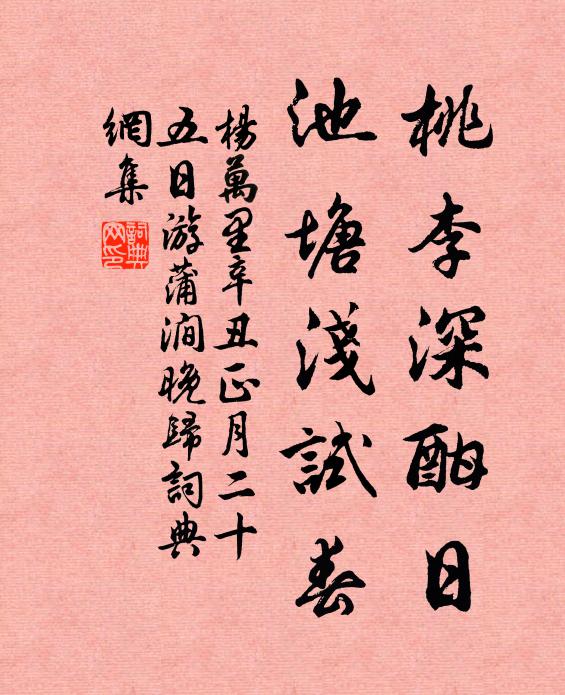 桃李深酣日
池塘淺試春
楊萬里辛丑正月二十
五日游蒲澗晚歸詞典
網集
詞典
网印